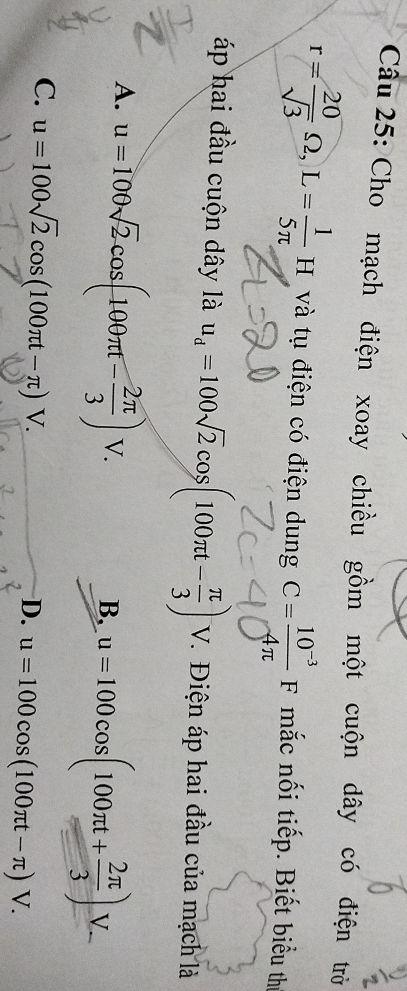 Câu 25: Cho mạch điện xoay chiều gồm một cuộn dây có điện trở
r = 20/√3 Ω, L = 1/5π H và tụ điện có điện dung C = 10⁻³/4π F mắc nối tiếp. Biết biểu th
ZL=20 Zc=40
áp hai đầu cuộn dây là u_d = 100√2 cos(100πt − π/3) V. Điện áp hai đầu của mạch là
A. u = 100√2 cos(100πt − 2π/3) V. B. u = 100 cos(100πt + 2π/3) V.
C. u = 100√2 cos(100πt − π) V. D. u = 100 cos(100πt − π) V.